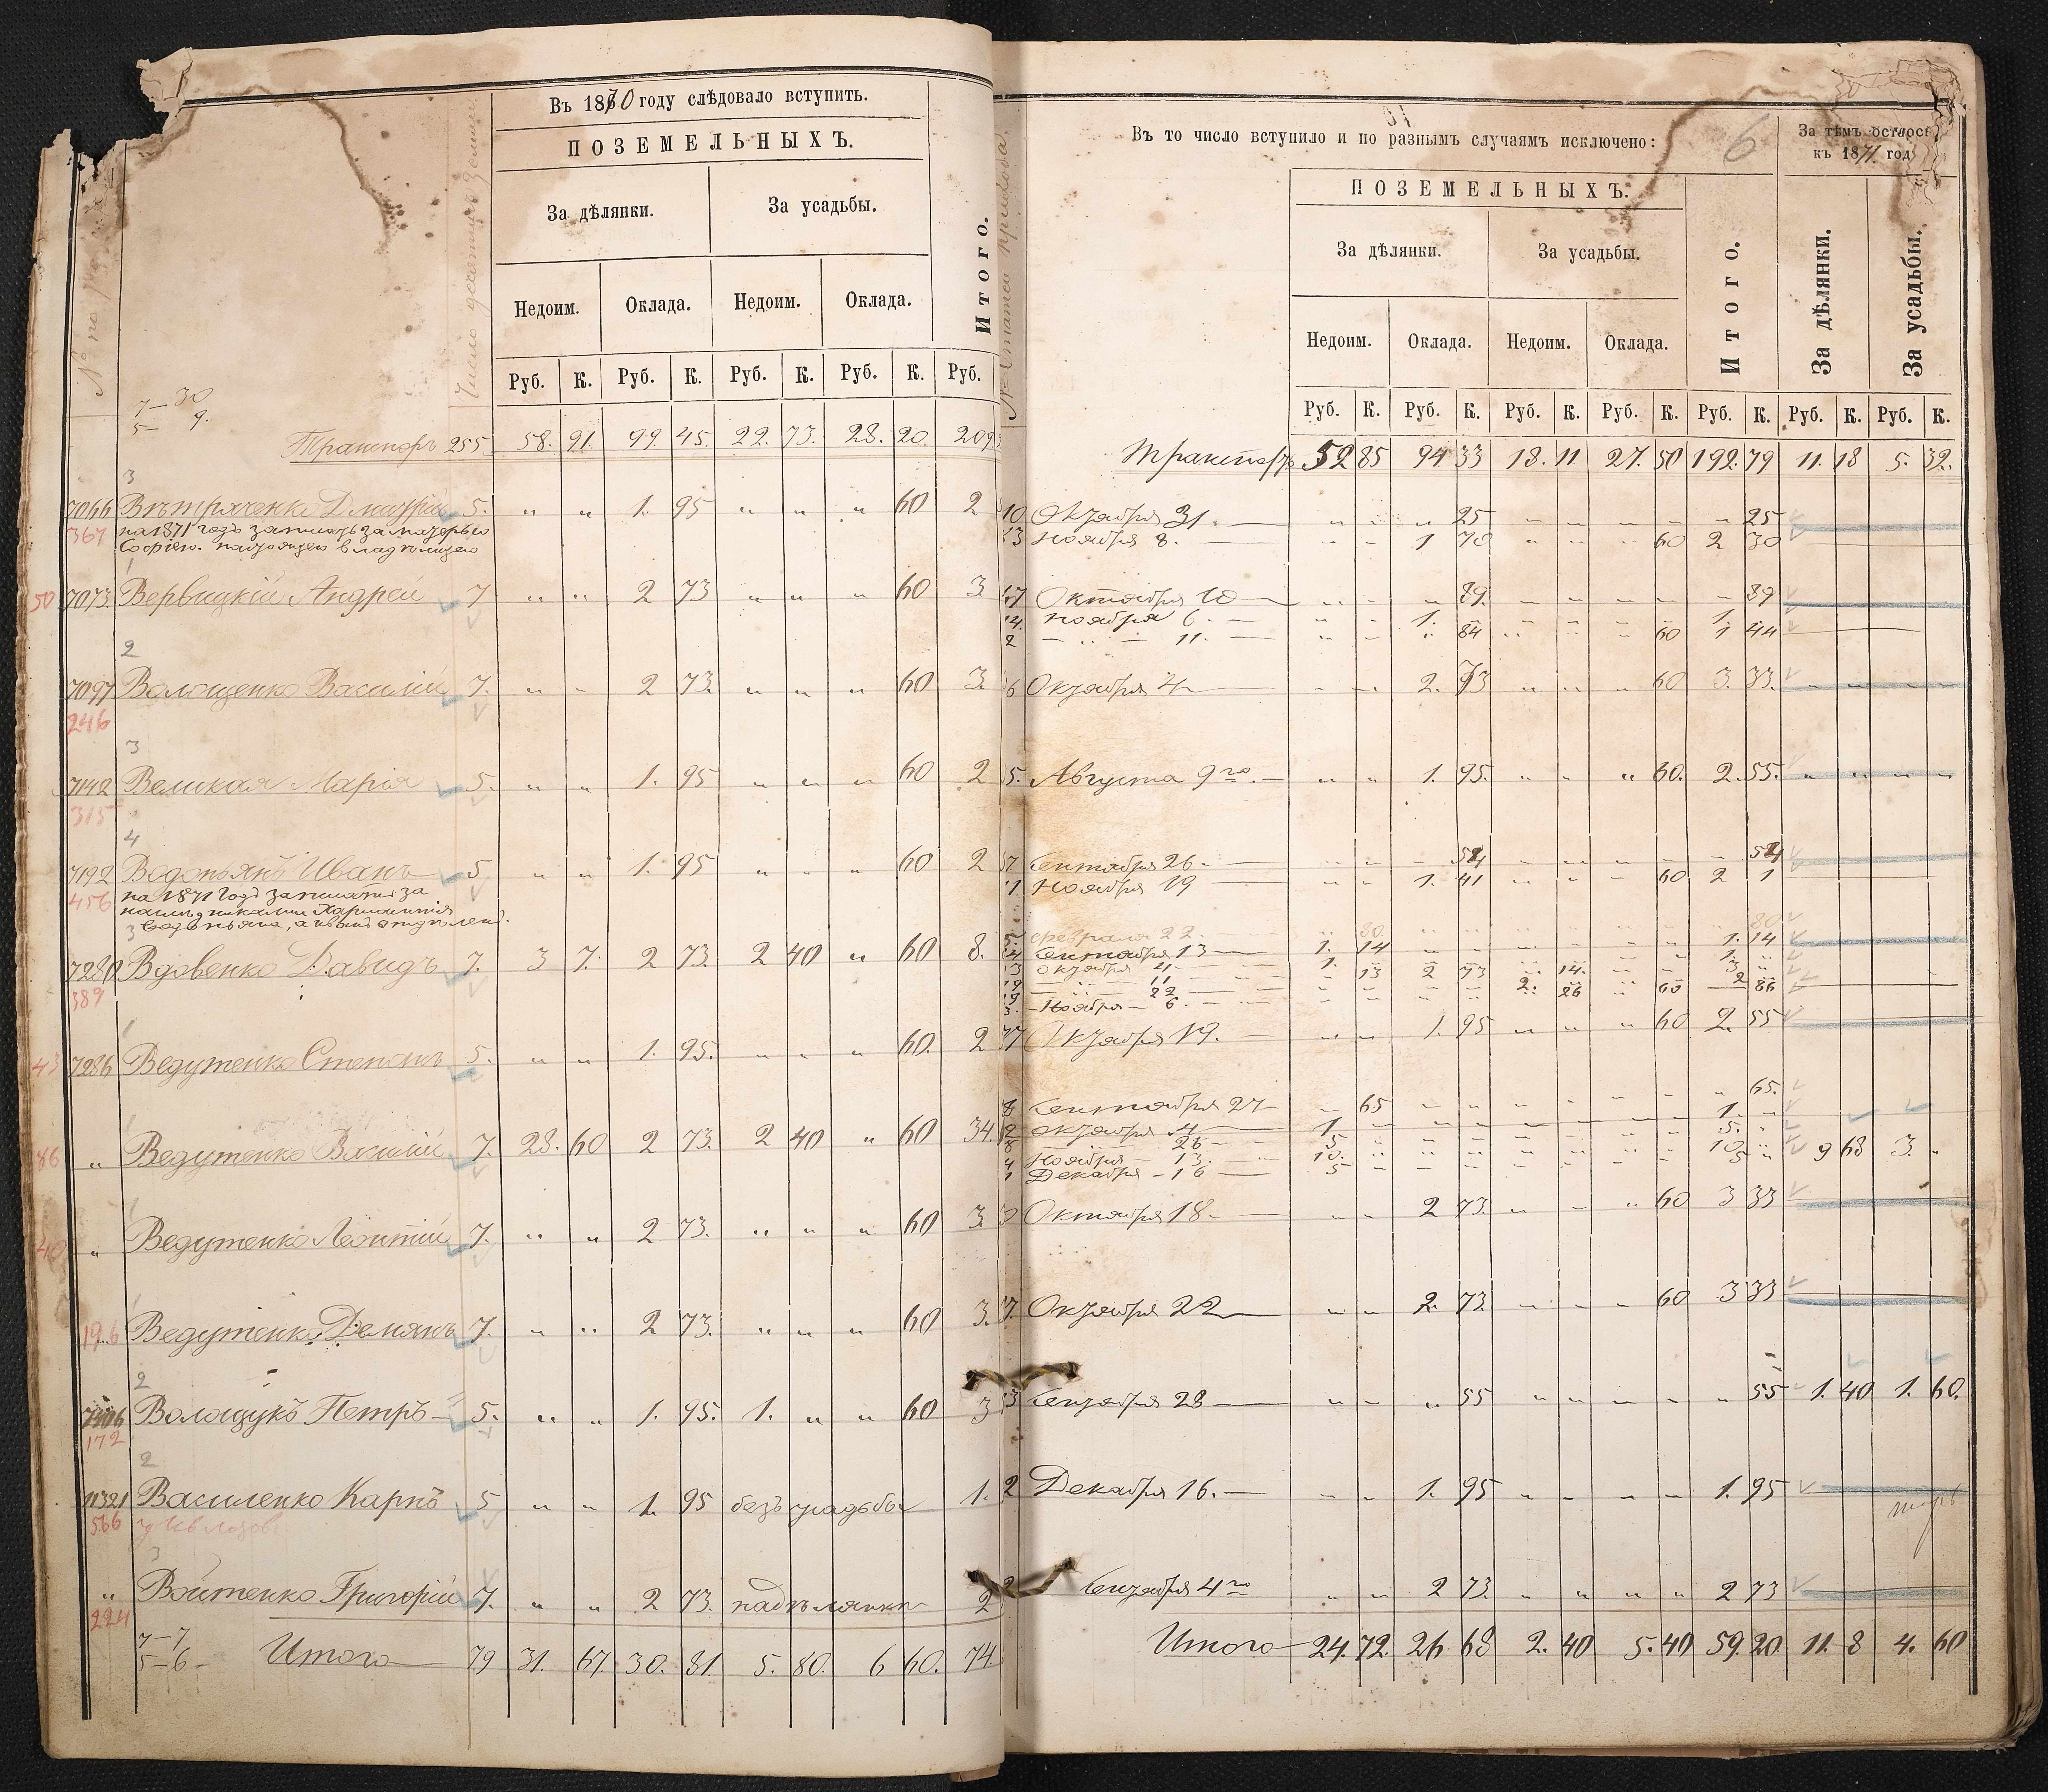 Въ 1870 году слѣдовало вступить.
ПОЗЕМЕЛЬНЫХЪ.
За дѣлянки. За усадьбы.
Недоим. Оклада. Недоим. Оклада. Итого.
Руб. К. Руб. К. Руб. К. Руб. К. Руб.
7— 30
5— 9.
Транспорт 255 58. 91. 99. 45. 22. 73. 28. 20. 209
3
7066 Вѣтряченко Дмитрій 5. „ „ 1. 95 „ „ „ 60 2
367 на 1871 годъ записать за матерью
Софіею
1
50 7073 Вервицкій Андрей 7 „ „ 2 73 „ „ „ 60 3
2
7097 Волощенко Василій 7. „ „ 2 73. „ „ „ 60 3.
246
3
7142 Великая Марія 5. „ „ 1. 95 „ „ „ 60 2
315
4
7192 Водопьянъ Иванъ 5 „ „ 1. 95 „ „ „ 60 2
456 на 1871 годъ записать за
3
7280 Вдовенко Давидъ 7. 3 7. 2 73. 2 40 „ 60 8.
389
1
43 7286 Ведутенко Степанъ 5. „ „ 1. 95. „ „ „ 60. 2
1
86 „ Ведутенко Василій 7. 28. 60 2 73. 2 40 „ 60 34.
1
40 „ Ведутенко Леонтій 7. „ „ 2 73. „ „ „ 60 3.
1
196 Ведутенко Демянъ 7. „ „ 2 73. „ „ „ 60 3.
2
Волощукъ Петръ 5. „ „ 1. 95. 1. „ „ 60 3
172
2
11321 Василенко Карпъ 5 „ „ 1. 95 безъ усадьбы 1.
566
3
„ Войтенко Григорій 7. „ „ 2 73. 2
224
7—7
5—6 Итого 79 31. 67. 30. 81. 5. 80. 6 60. 74
Въ то число вступило и по разнымъ случаямъ исключено: 6
За тѣмъ осталось
къ 1871 год
ПОЗЕМЕЛЬНЫХЪ.
За дѣлянки. За усадьбы. Итого. За дѣлянки. За усадьбы.
Недоим. Оклада. Недоим. Оклада.
Руб. К. Руб. К. Руб. К. Руб. К. Руб. К. Руб. К. Руб. К.
Транспортъ 52 85 94 33 18. 11. 27. 50 192. 79 11. 18 5. 32.
10 Октября 31. „ „ „ 25 „ „ „ „ „ 25
13 Ноября 8. „ „ 1 70 „ „ „ 60 2 30
Октября 10 „ „ „ 89. „ „ „ „ „ 89
Ноября 6. „ „ 1. „ „ „ „ „ 1. „
2 — „ — 11. „ „ „ 84 „ „ „ 60 1 44
6 Октября 4 „ „ 2. 73 „ „ „ 60 3. 33. „ „ „ „
5. Августа 9го. „ „ 1. 95. „ „ „ 60. 2. 55. „ „ „ „
Сентября 26. „ „ „ 54 „ „ „ „ „ 54
Ноября 19 „ „ 1. 41 „ „ „ 60 2 1
Февраля 22. „ 80. „ „ „ „ „ „ „ 80
Сентября 13 1. 14 „ „ „ „ „ „ 1. 14
Октября 4. 1.
— „ — 11 „ 13 2 73 „ 14. „ „ 3 „
— „ — 22 2. 26 „ 60 2 86
Ноября 6.
Октября 19. „ „ 1. 95 „ „ „ 60 2. 55
8 Сентября 27 „ 65 „ „ „ „ „ „ „ 65.
Октября 4 1. „ „ „ „ „ „ „ 1. „
26 5 „ „ „ „ „ „ „ 5. „
Ноября 13. 10. „ „ „ „ „ „ „ 10 „ 9 68 3. „
1 Декабря 16 5 „ „ „ „ „ „ „ 5 „
Октября 18. „ „ 2 73. „ „ „ 60 3 33
Октября 22 „ „ 2. 73. „ „ „ 60 3 33
Сентября 28 „ „ „ 55 „ „ „ „ „ 55 1. 40 1. 60.
2 Декабря 16. „ „ 1. 95 „ „ „ „ 1. 95
Сентября 4го „ „ 2 73. „ „ „ „ 2 73
Итого 24. 72. 26 68 2. 40 5. 40 59. 20 11. 8 4. 60